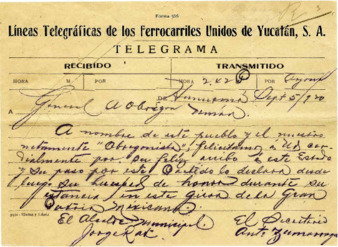 Forma 519
Líneas Telegráficas de los Ferrocarriles Unidos de Yucatán, S. A.
TELEGRAMA
RECIBIDO TRANSMITIDO
HORA POR HORA 2.42 POR
De Sept 5/920
A General A Obregon
A nombre de este pueblo y el nuestro
netamente "Obregonista" felicitamos a Ud cor
dialmente por su feliz arribo a este Estado
y su paso por este Partido lo declara desde
luego su huesped de honor durante su
estancia en esta gira de la Gran
Patria Mexicana
El Alcalde Municipal El Secretario
Jorge